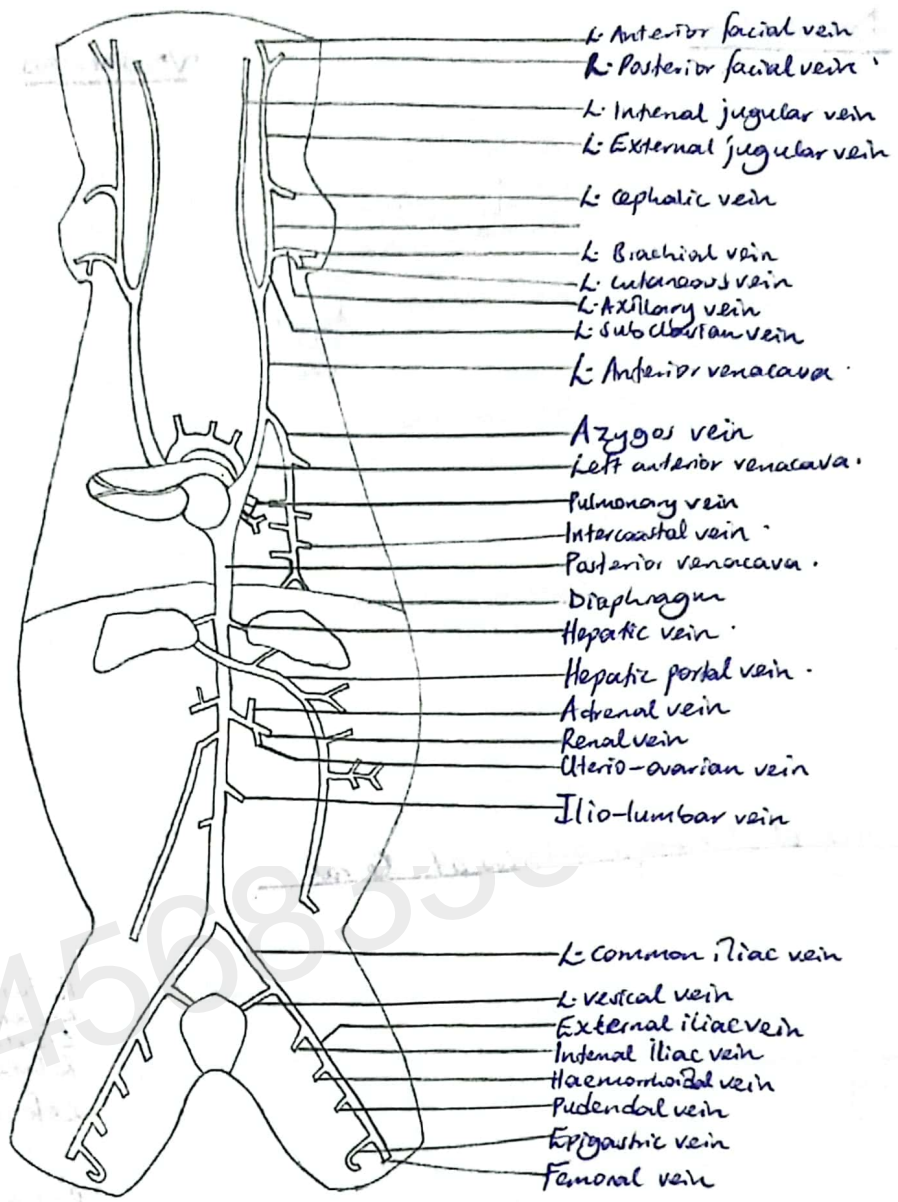 L. Anterior facial vein
R. Posterior facial vein
L. Internal jugular vein
L. External jugular vein
L. cephalic vein
L. Brachial vein
L. cutaneous vein
L. Axillary vein
L. subclavian vein
L. Anterior venacava.
Azygos vein
Left anterior venacava.
Pulmonary vein
Intercoastal vein
Posterior venacava.
Diaphragm
Hepatic vein
Hepatic portal vein.
Adrenal vein
Renal vein
Uterio-ovarian vein
Ilio-lumbar vein
L. common iliac vein
L. vesical vein
External iliac vein
Internal iliac vein
Haemorrhoidal vein
Pudendal vein
Epigastric vein
Femoral vein